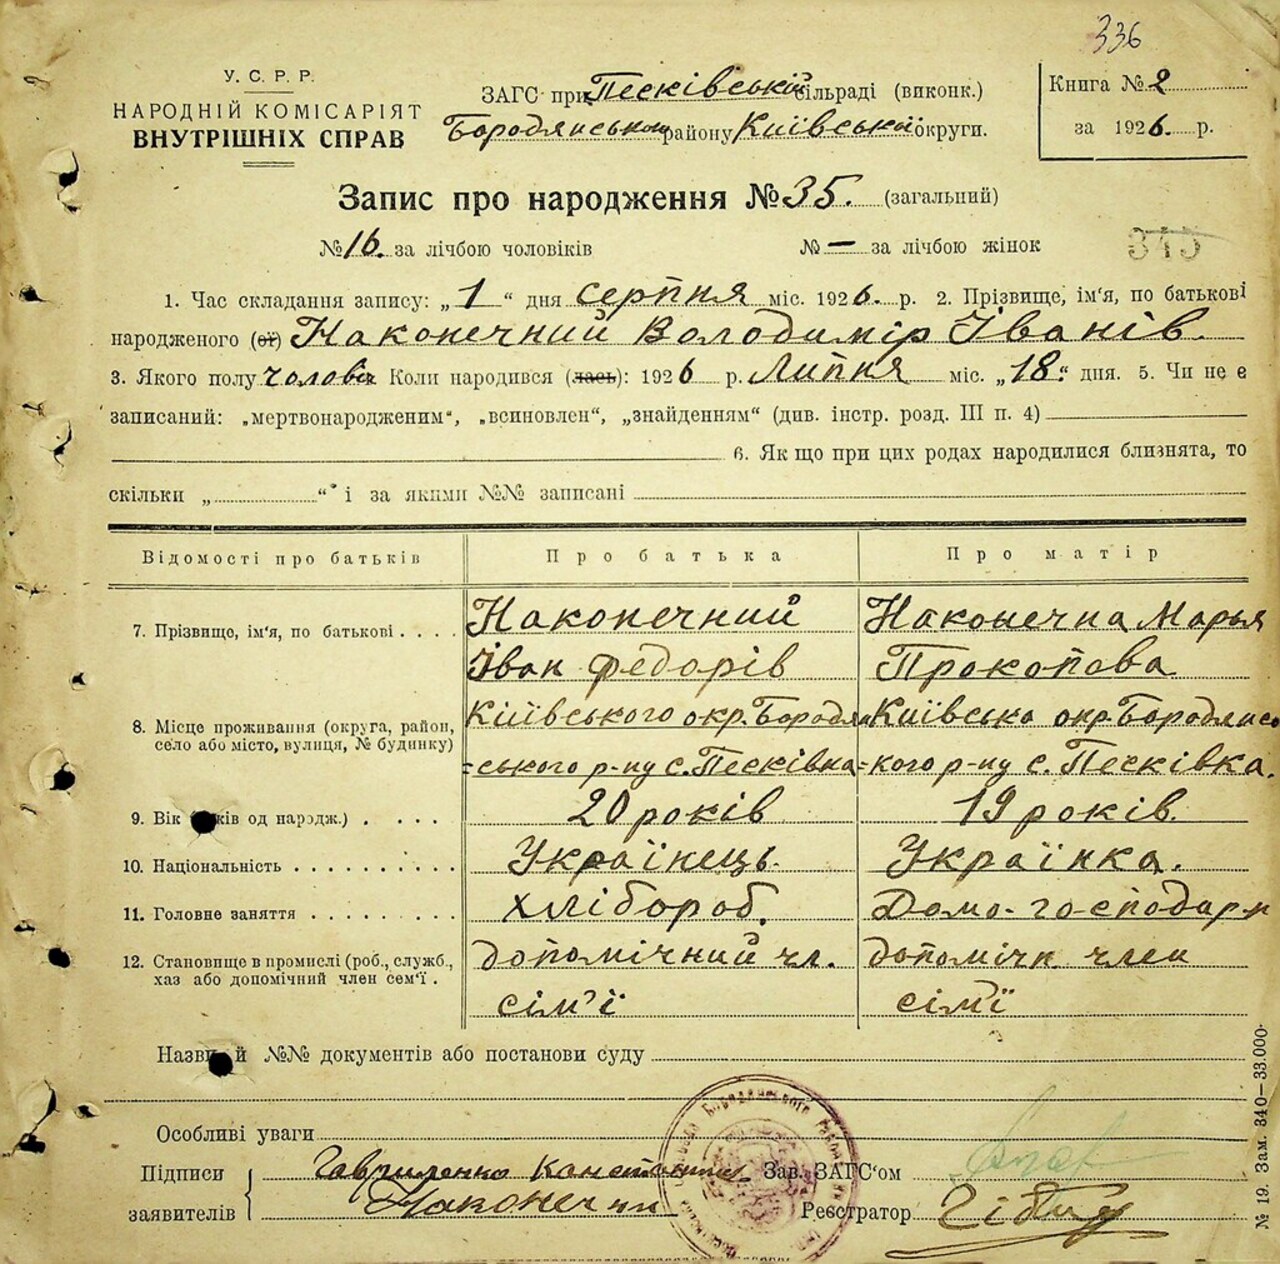 336
У. С. Р. Р.
НАРОДНІЙ КОМІСАРІЯТ
ВНУТРІШНІХ СПРАВ
ЗАГС при Песківській сільраді (виконк.)
Бородянською району Київської округи.
Книга № 2
за 1926. р.
Запис про народження № 35. (загальний)
№ 16. за лічбою чоловіків № — за лічбою жінок
345
1. Час складання запису: „1“ дня серпня міс. 1926. р. 2. Прізвище, ім'я, по батькові
народженого (ої) Наконечний Володимір Іванів.
3. Якого полу чолові Коли народився (лась): 1926 р. Липня міс. „18“ дня. 5. Чи не є
записаний: „мертвонародженим“, „всиновлен“, „знайденням“ (див. інстр. розд. III п. 4)
6. Як що при цих родах народилися близнята, то
скільки „ “ і за якими №№ записані
Відомості про батьків Про батька Про матір
7. Прізвище, ім'я, по батькові . . . . Наконечний Наконечна Марья
Іван Федорів Прокопова
8. Місце проживання (округа, район, село або місто, вулиця, № будинку) Київського окр. Бородян Київсько окр. Бородянсь
=ського р-ну с. Песківка =кого р-ну с. Песківка.
9. Вік ків од народж.) . . . . 20 років 19 років.
10. Національність . . . . . . . . . . Українець. Українка.
11. Головне заняття . . . . . . . . . Хлібороб. Домо-господарн
12. Становище в промислі (роб., служб., допомічний чл. допомічн член
хаз або допомічний член сем'ї . сім'ї сім'ї
Назви й №№ документів або постанови суду
Особливі уваги
Підписи Гавриленко Константин Зав. ЗАГС'ом
заявителів Наконечн Реєстратор
№ 19. Зам. 340—33.000.